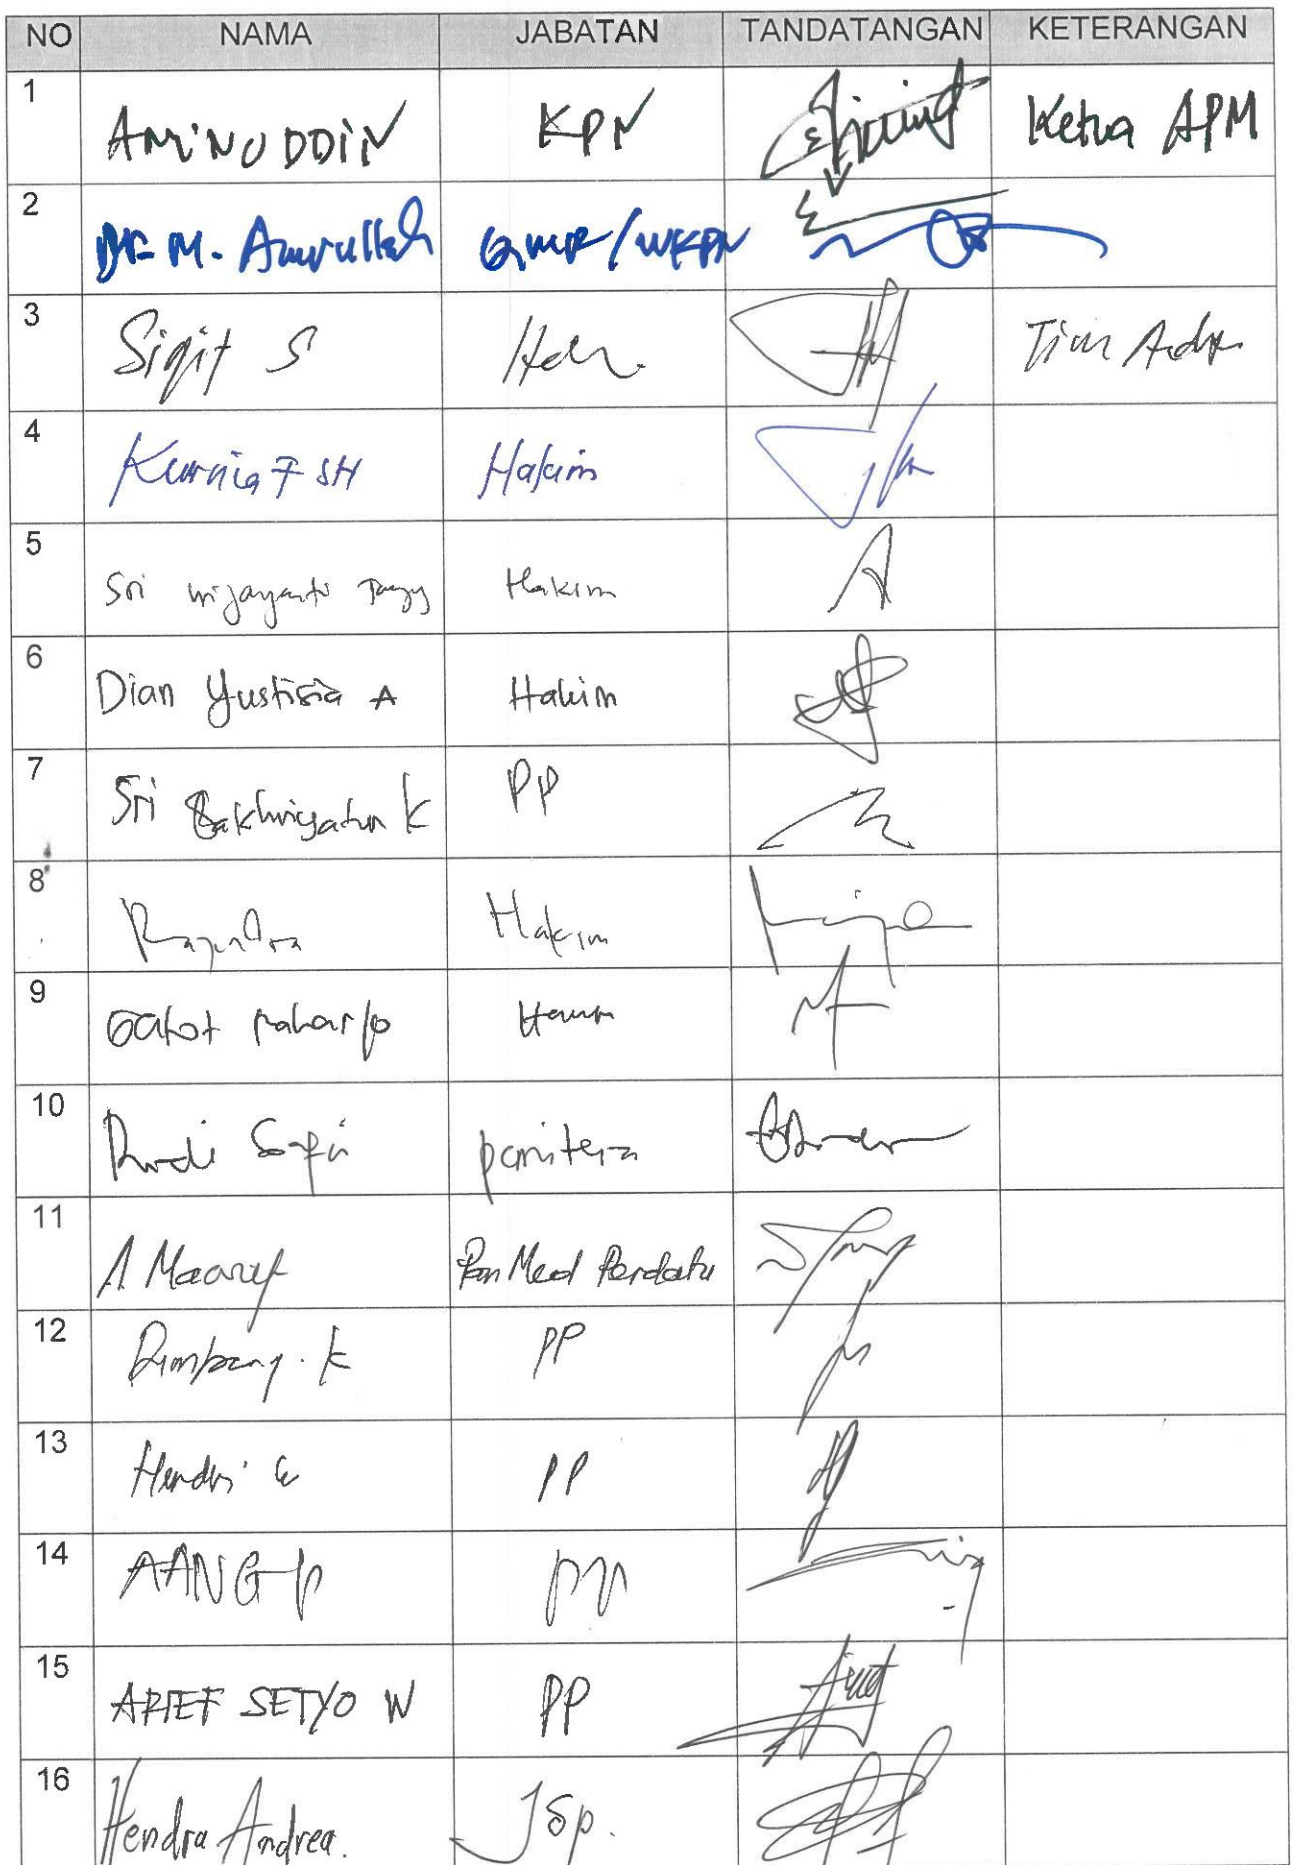 NO NAMA JABATAN TANDATANGAN KETERANGAN
1 AMINUDDIN KPN Ketua APM
2 Dr. M. Amrullah QMR/WKPN
3 Sigit S Tim
4 Kurnia F SH Hakim
5 Sri wijayanti Hakim
6 Dian Yustisia A Hakim
7 Sri K PP
8 Rajendra Hakim
9 Gatot raharjo
10 Rudi panitera
11 A Maaruf Pan Mud Perdata
12 Bambang. K PP
13 Hendri PP
14 AANG PP
15 ARIEF SETYO W PP
16 Hendra Andrea. JSp.